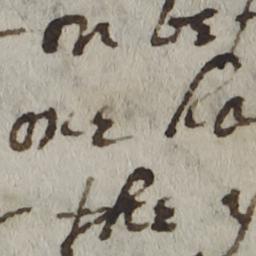 on bet
one ha
the y